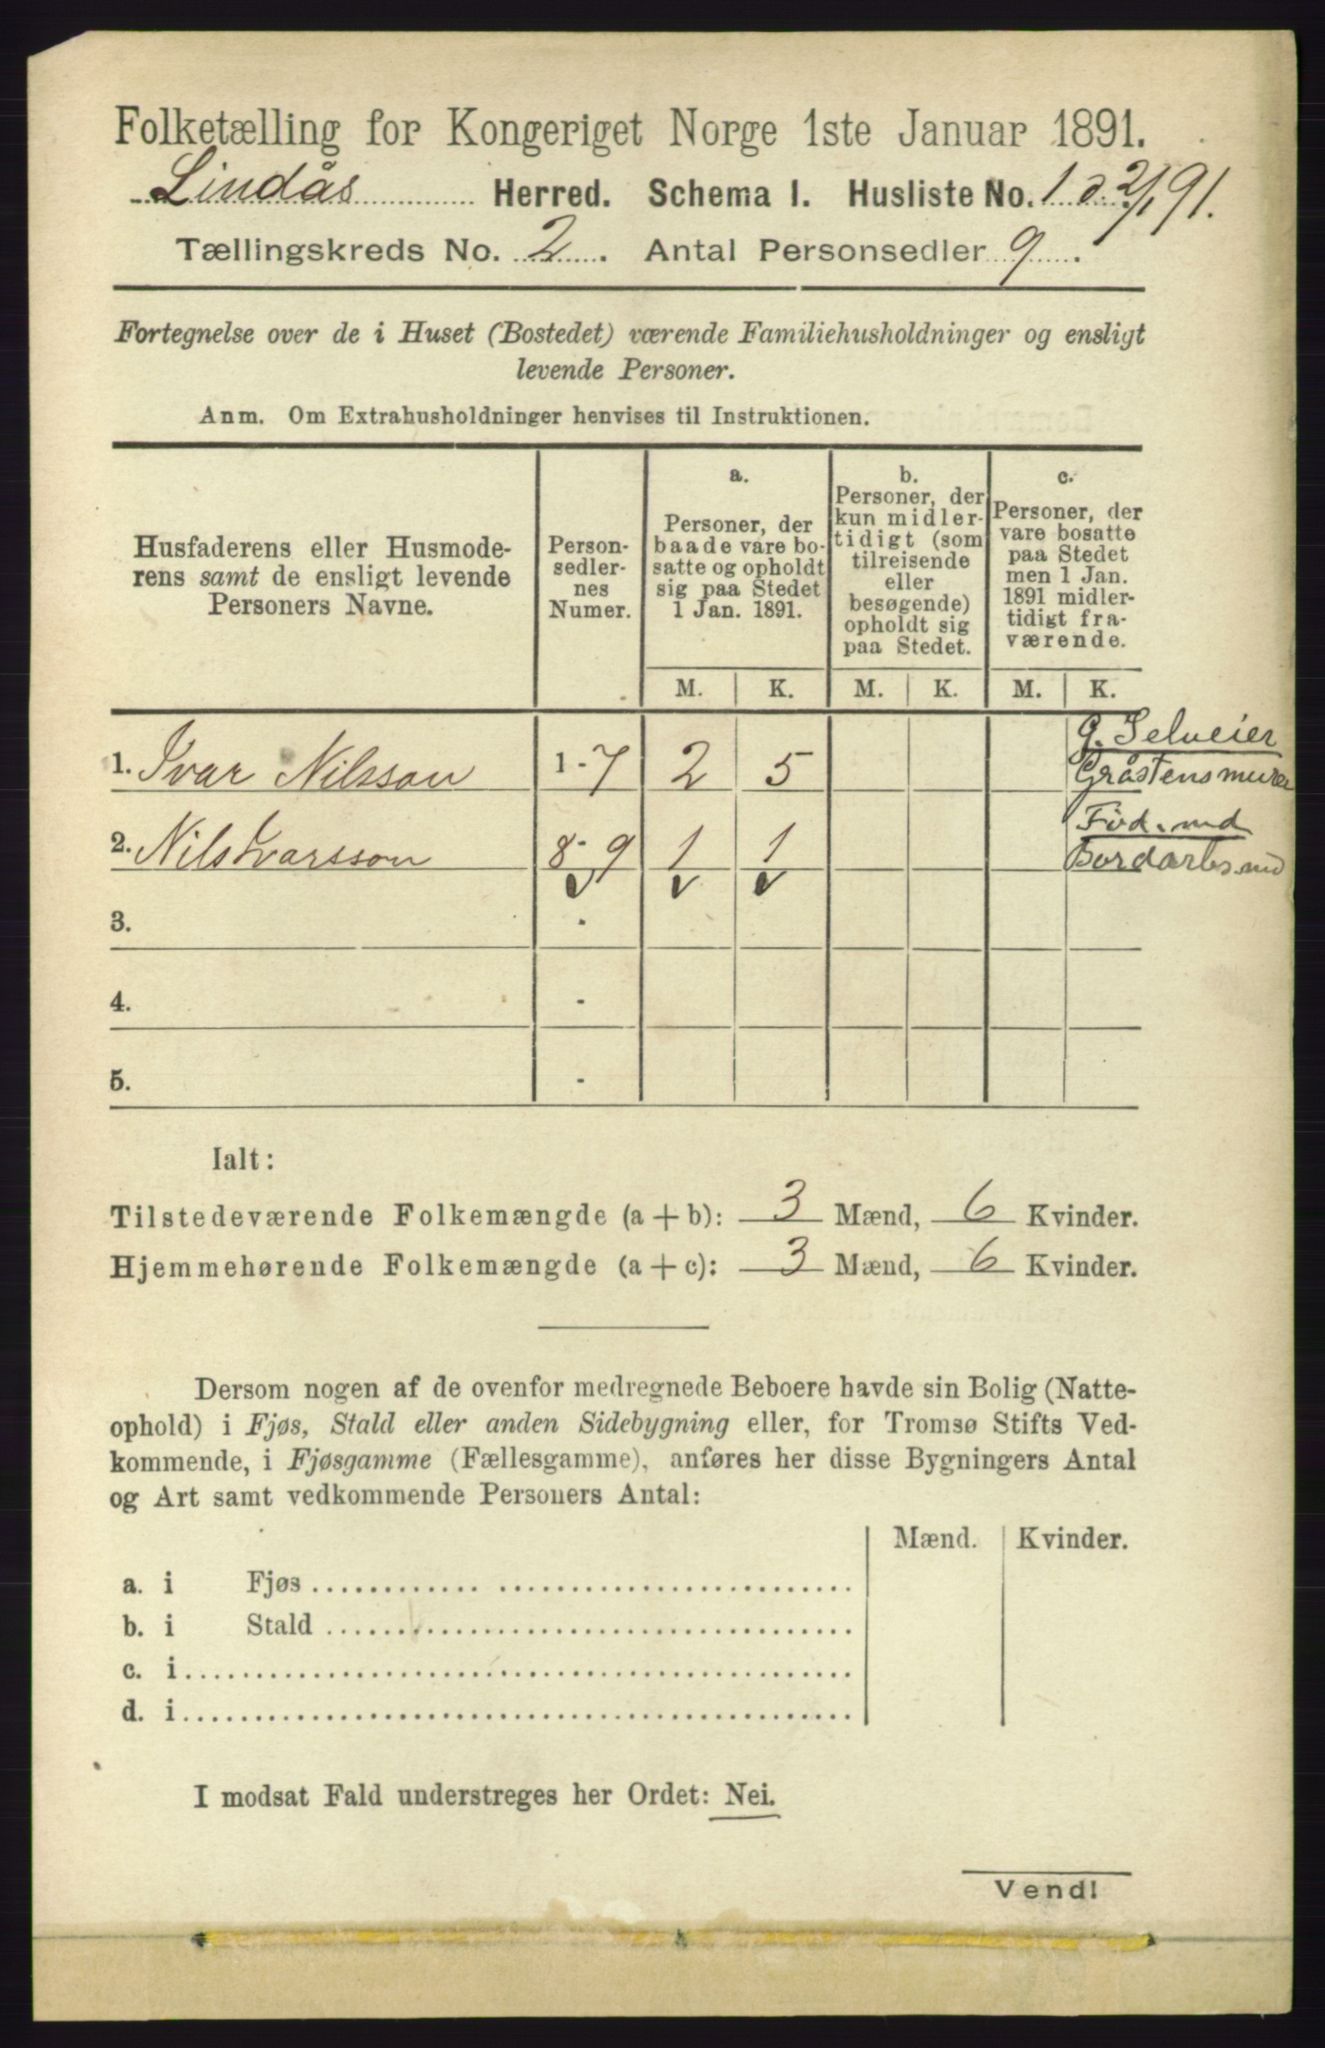 Folketælling for Kongeriget Norge 1ste Januar 1891.
Lindås Herred. Schema I. Husliste No. 1 d. 2/1 91.
Tællingskreds No. 2. Antal Personsedler 9.
Fortegnelse over de i Huset (Bostedet) værende Familiehusholdninger og ensligt
levende Personer.
Anm. Om Extrahusholdninger henvises til Instruktionen.
Husfaderens eller Husmode-
rens samt de ensligt levende
Personers Navne.
Person-
sedler-
nes
Numer.
a.
Personer, der
baade vare bo-
satte og opholdt
sig paa Stedet
1 Jan. 1891.
b.
Personer, der
kun midler-
tidigt (som
tilreisende
eller
besøgende)
opholdt sig
paa Stedet.
c.
Personer, der
vare bosatte
paa Stedet
men 1 Jan.
1891 midler-
tidigt fra-
værende.
M. K. M. K. M. K.
G. Selveier
1. Ivar Nilsson 1-7 2 5 Gråstensmurer
2. Nils Ivarsson 8-9 1 1
3. -
4. -
5. -
Ialt:
Tilstedeværende Folkemængde (a+b): 3 Mænd, 6 Kvinder.
Hjemmehørende Folkemængde (a+c): 3 Mænd, 6 Kvinder.
Dersom nogen af de ovenfor medregnede Beboere havde sin Bolig (Natte-
ophold) i Fjøs, Stald eller anden Sidebygning eller, for Tromsø Stifts Ved-
kommende, i Fjøsgamme (Fællesgamme), anføres her disse Bygningers Antal
og Art samt vedkommende Personers Antal:
Mænd. Kvinder.
a. i Fjøs
b. i Stald
c. i
d. i
I modsat Fald understreges her Ordet: Nei.
Vend!